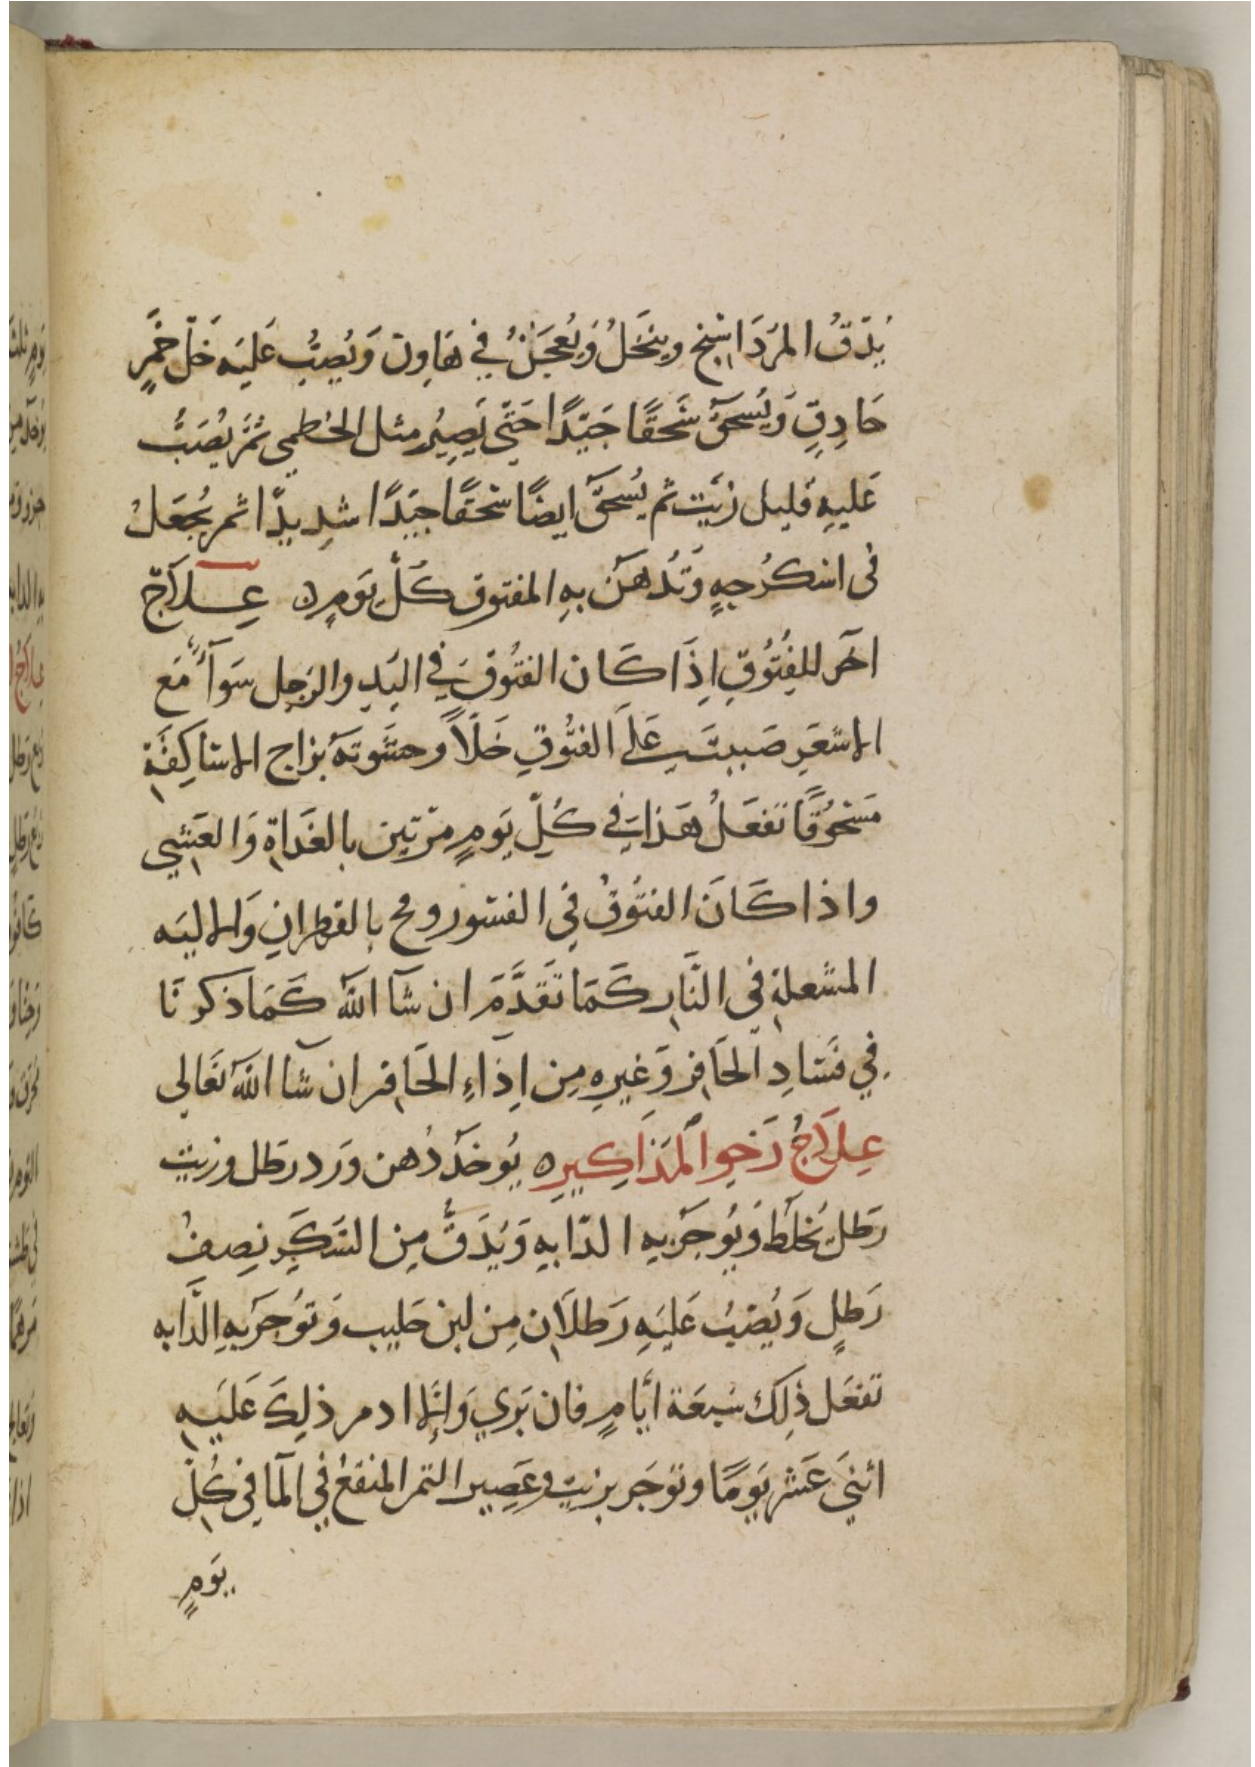 يُدَقُ المَردَاسْنِخ وينخَلُ وَيُعجَنُ في هَاون وَيُصَبُّ عَليَه خَلّ خمَرٍ
حَادِقٍ وَيُسحَقُ سَحقًا جَيّدًا حَتّي يَصِيُر مثل الخطمي ثمَّ يُصَبُّ
عَليهِ قليل زيَت ثم يُسحَق ايضًا سَحقًا جَيَدًا شدِيدًا ثمر يُجعَلُ
في اسكرُجهٍ وَتُدهَن بهِ المفتوق كُلّ يَومٍ ه عِـلاَج
اخَر للِفُتُوُقِ اِذَا كَان الفتُوقَ فِي اليَدِ والرَجلِ سَوآءً مَع
الاشعَرِ صَببتَ عَلَى الفتُوقِ خَلًا وحشَوتهَ بزاج الاسَاكِفَةِ
مَسحُوُقًا تفعَلُ هَذا فِي كُلِّ يَومٍ مرّتين بالغَدَاةِ وَالعَشِي
واذا كَانَ الفتُوقُ فِي الفسور ومح بالقطرانِ وَالاليَه
المشعلهِ في النَّارِ كَمَا تَقَدَّمَ ان شآ اللّهَ كَمَا ذكرنَا
في فَسَادِ الحَافِر وَغيرِهِ مِن اِذَاءِ الحَافِر ان شآ اللّهَ تَعَالي
عِلَاجُ رَخوِ المَذَاكِيرِ ه يُوخَذ دُهن وَرد رطل وزيت
رَطل يُخلَط وَيُوجَر بهِ الدّابهِ وَيُدَقُّ مِن السَكَرِ نِصفُ
رَطلٍ وَيُصَبُ عَليَهِ رَطلَانِ مِن لبن حَليب وَتوُجَر بهِ الدَّابه
تفعَل ذَلِك سَبعَة ايَّامٍ فان بَرِي وَاِلَّا ادمر ذلِكَ عَليَهِ
اثنيَ عَشَر يَومًا وتوَجَر بزيتِ وعَصِير التمر المنقعُ فِي المآ فِي كُلّ
يَومٍ